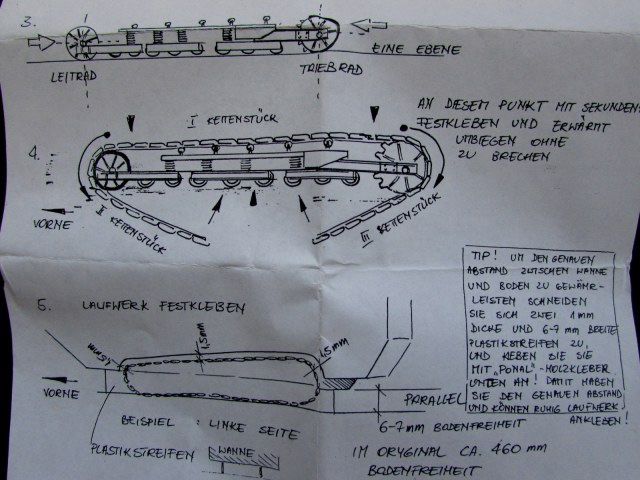 3.
LEITRAD
TRIEBRAD
EINE EBENE
4.
I KETTENSTÜCK
AN DIESEM PUNKT MIT SEKUNDEN-
FESTKLEBEN UND ERWÄRMT
UMBIEGEN OHNE
ZU BRECHEN
VORNE
II KETTENSTÜCK
III KETTENSTÜCK
5. LAUFWERK FESTKLEBEN
1,5mm
1,5mm
1,5mm
VORNE
PARALLEL
BEISPIEL : LINKE SEITE
PLASTIKSTREIFEN
WANNE
6-7mm BODENFREIHEIT
IM ORYGINAL CA. 460 mm
BODENFREIHEIT
TIP! UM DEN GENAUEN
ABSTAND ZWISCHEN WANNE
UND BODEN ZU GEWÄHR-
LEISTEN SCHNEIDEN
SIE SICH ZWEI 1mm
DICKE UND 6-7 mm BREITE
PLASTIKSTREIFEN ZU,
UND KLEBEN SIE SIE
MIT „PONAL"-HOLZKLEBER
UNTEN AN! DAMIT HABEN
SIE DEN GENAUEN ABSTAND
UND KÖNNEN RUHIG LAUFWERK
ANKLEBEN!